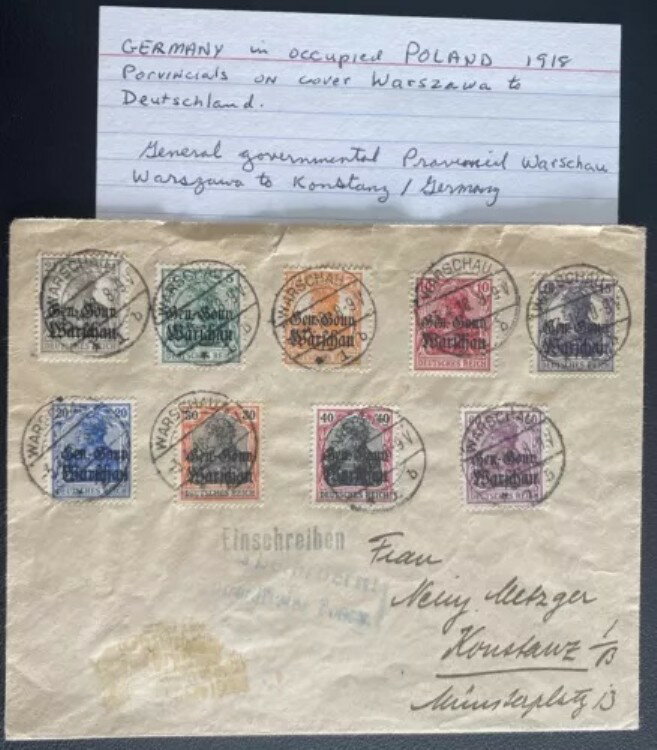 GERMANY in occupied POLAND 1918
Porvincials on cover Warszawa to
Deutschland.
General governmental Provinciil Warschau
Warszawa to Konstanz / Germany
WARSCHAU WARSCHAU WARSCHAU WARSCHAU WARSCHAU
Gen.-Gouv. Gen.-Gouv. Gen.-Gouv. 10 Gen.-Gouv. 15 Gen.-Gouv.
Warschau Warschau Warschau Warschau Warschau
DEUTSCHES REICH
WARSCHAU WARSCHAU WARSCHAU
20 20 30 40 40
Gen.-Gouv. Gen.-Gouv. Gen.-Gouv. Gen.-Gouv.
Warschau Warschau Warschau Warschau
DEUTSCHES REICH DEUTSCHES REICH DEUTSCHES REICH DEUTSCHES REICH
Einschreiben
Frau
Neny Metzger
Konstanz 1/B
Münsterplatz 13